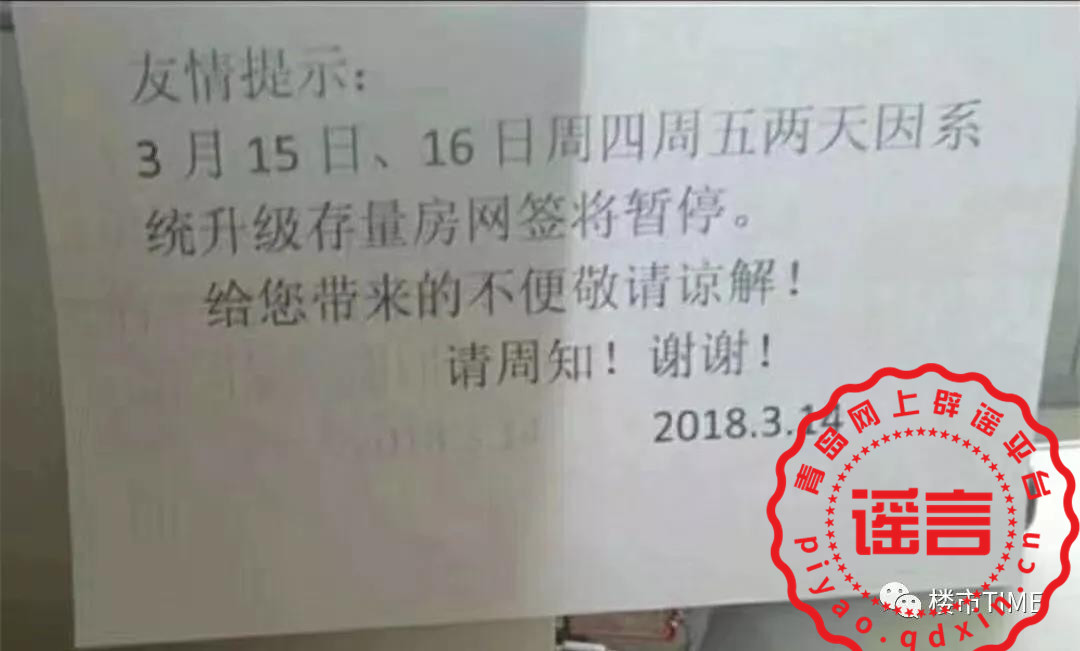 友情提示：
3 月 15 日、16 日周四周五两天因系
统升级存量房网签将暂停。
给您带来的不便敬请谅解！
请周知！谢谢！
2018.3.14
青岛网上辟谣平台
谣言
piyao.qdxin.cn
楼市TIME